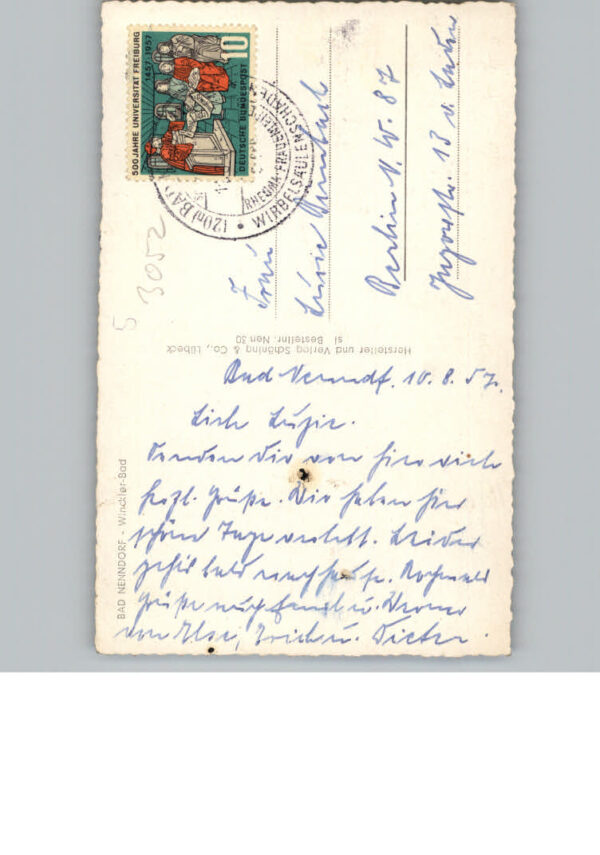 500 JAHRE UNIVERSITÄT FREIBURG
1457-1957
10
DEUTSCHE BUNDESPOST
(20a) BAD
RHEUMA-FRAUENLEI
WIRBELSÄULENSCHÄDE
3052
5
Frau
Berlin N.W. 87
13
Hersteller und Verlag Schöning & Co., Lübeck
sl Bestellnr. Nen 30
BAD NENNDORF - Winckler-Bad
Bad Nenndf. 10.8.57.
Liebe Luzie.
Senden Dir von hier viele
herzl. Grüße. Wir haben hier
schöne Tage verlebt. Leider
gehts bald nach Hause. Nochmals
Grüße auch u. Werner
von Else, Erich u. Dieter.